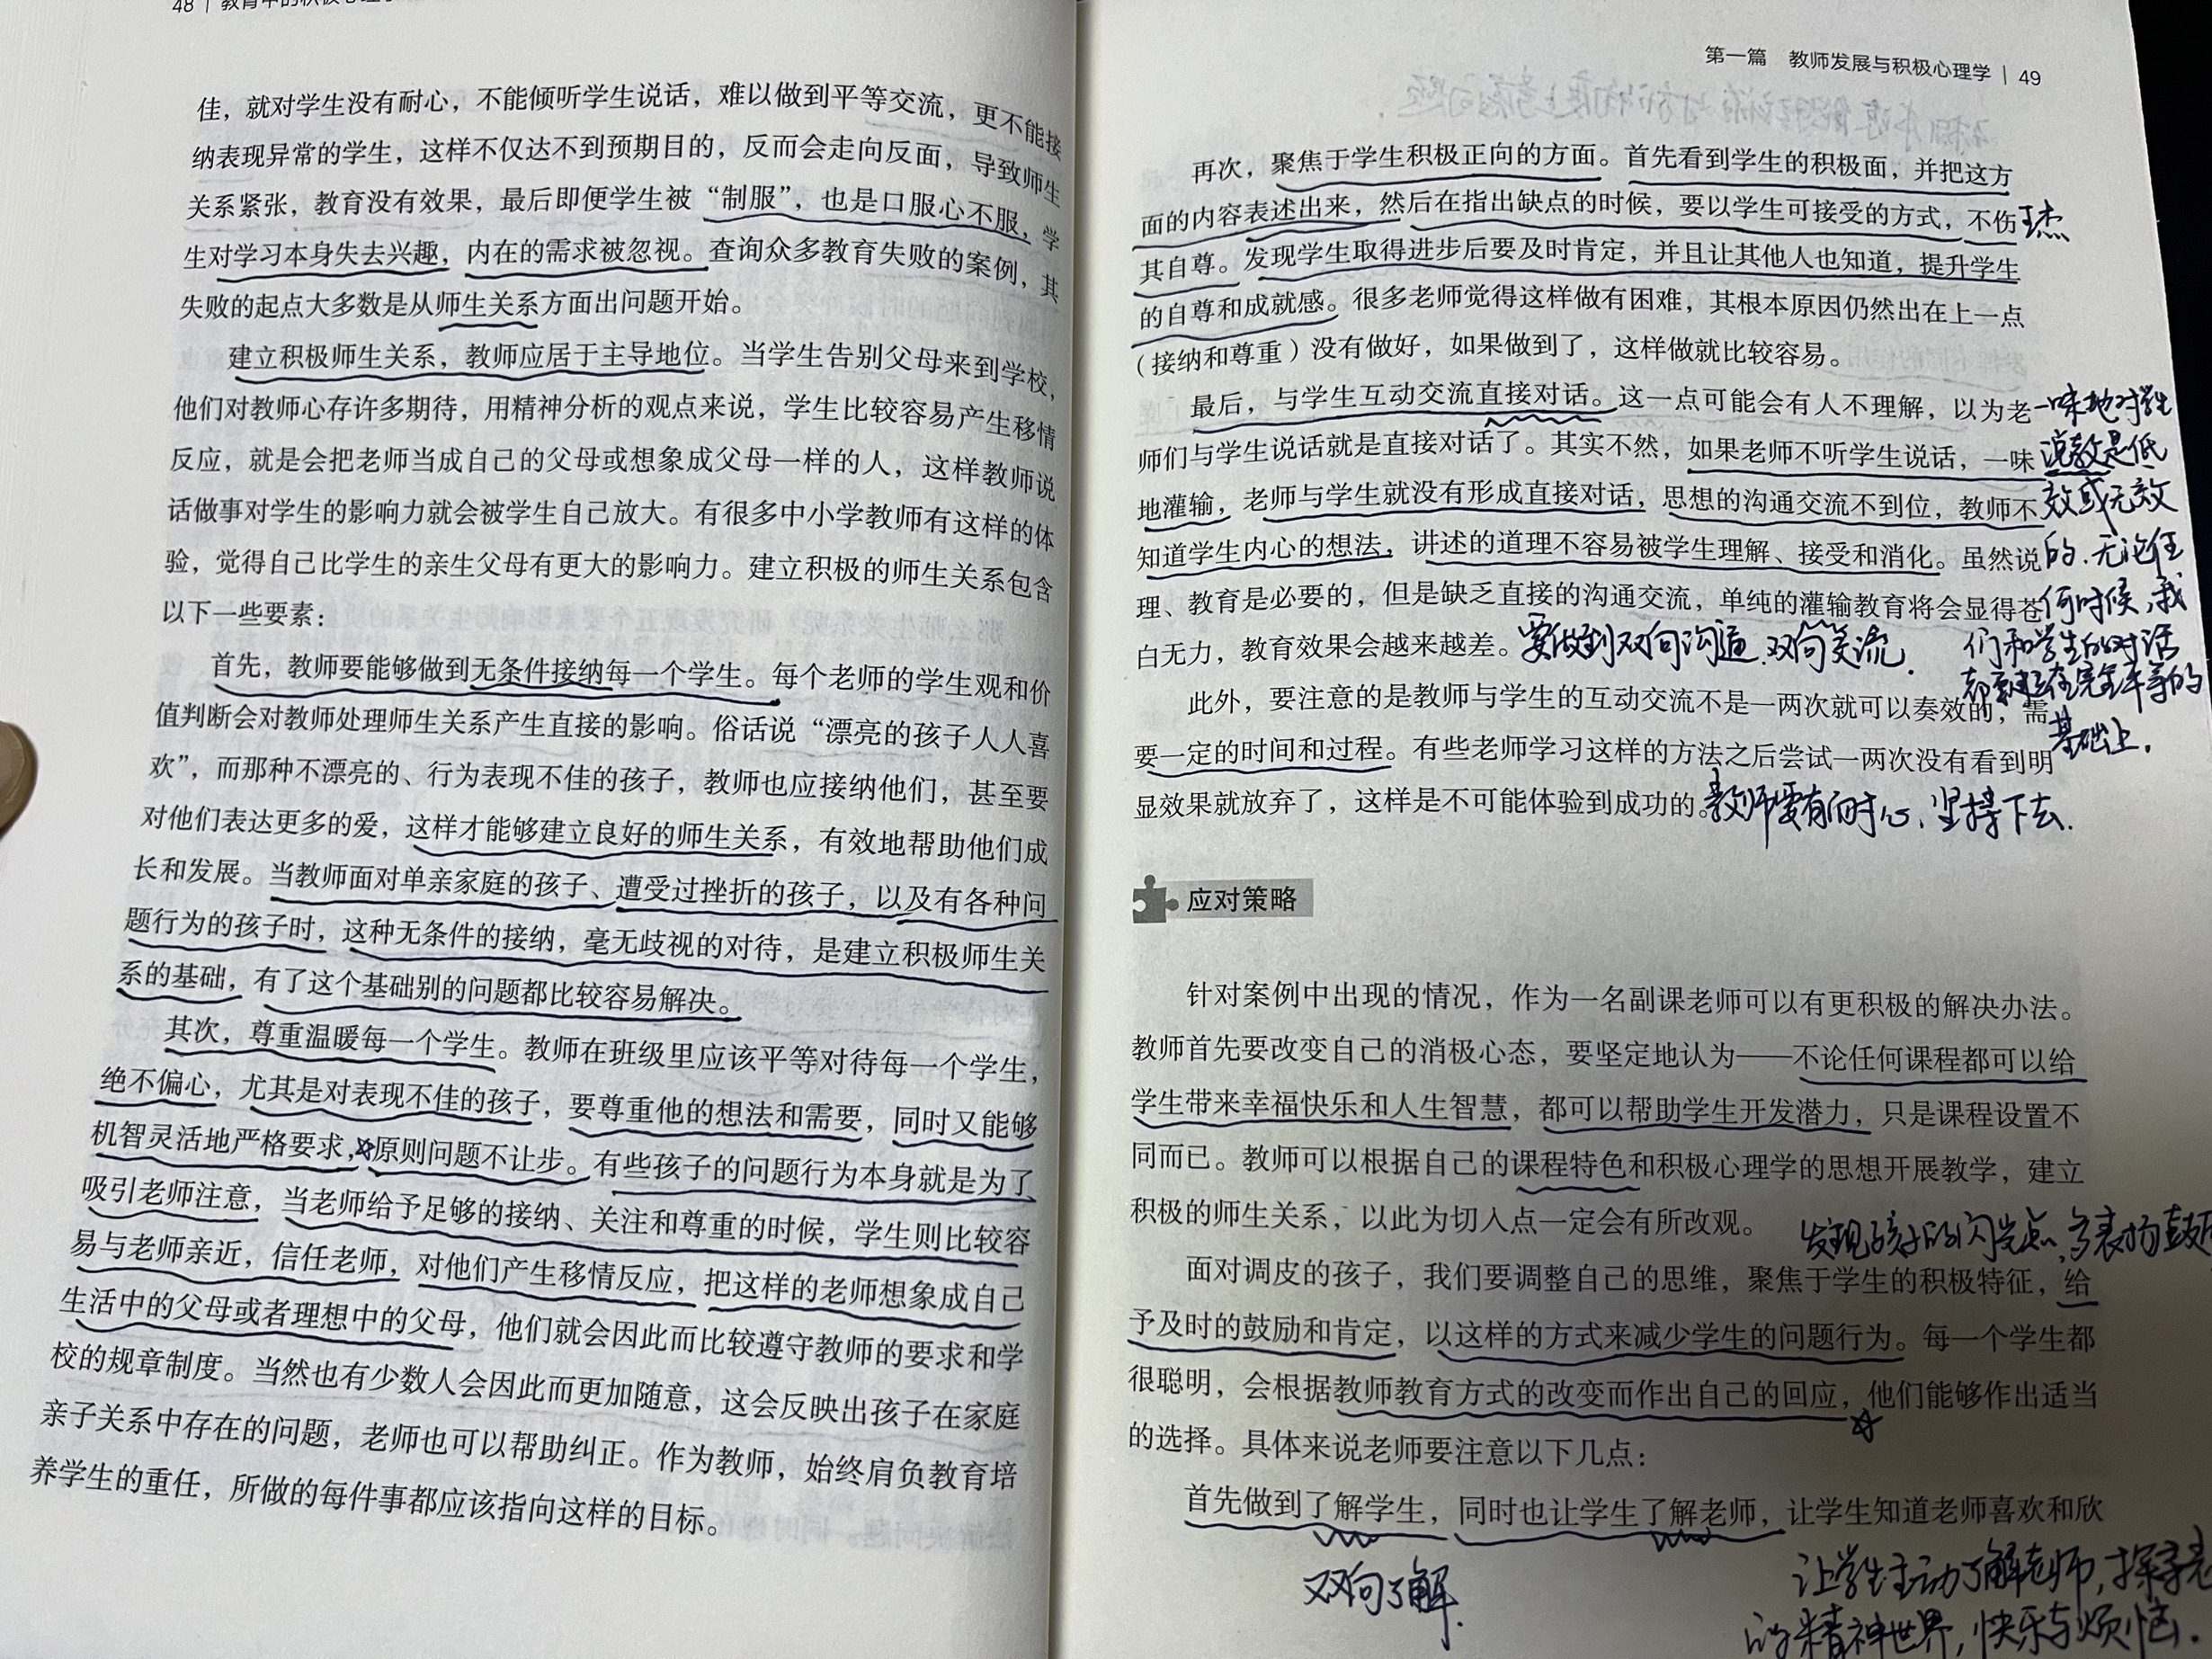 48 | 教育中的积极心理学
佳，就对学生没有耐心，不能倾听学生说话，难以做到平等交流，更不能接
纳表现异常的学生，这样不仅达不到预期目的，反而会走向反面，导致师生
关系紧张，教育没有效果，最后即便学生被“制服”，也是口服心不服，学
生对学习本身失去兴趣，内在的需求被忽视。查询众多教育失败的案例，其
失败的起点大多数是从师生关系方面出问题开始。
建立积极师生关系，教师应居于主导地位。当学生告别父母来到学校，
他们对教师心存许多期待，用精神分析的观点来说，学生比较容易产生移情
反应，就是会把老师当成自己的父母或想象成父母一样的人，这样教师说
话做事对学生的影响力就会被学生自己放大。有很多中小学教师有这样的体
验，觉得自己比学生的亲生父母有更大的影响力。建立积极的师生关系包含
以下一些要素：
首先，教师要能够做到无条件接纳每一个学生。每个老师的学生观和价
值判断会对教师处理师生关系产生直接的影响。俗话说“漂亮的孩子人人喜
欢”，而那种不漂亮的、行为表现不佳的孩子，教师也应接纳他们，甚至要
对他们表达更多的爱，这样才能够建立良好的师生关系，有效地帮助他们成
长和发展。当教师面对单亲家庭的孩子、遭受过挫折的孩子，以及有各种问
题行为的孩子时，这种无条件的接纳，毫无歧视的对待，是建立积极师生关
系的基础，有了这个基础别的问题都比较容易解决。
其次，尊重温暖每一个学生。教师在班级里应该平等对待每一个学生，
绝不偏心，尤其是对表现不佳的孩子，要尊重他的想法和需要，同时又能够
机智灵活地严格要求，原则问题不让步。有些孩子的问题行为本身就是为了
吸引老师注意，当老师给予足够的接纳、关注和尊重的时候，学生则比较容
易与老师亲近，信任老师，对他们产生移情反应，把这样的老师想象成自己
生活中的父母或者理想中的父母，他们就会因此而比较遵守教师的要求和学
校的规章制度。当然也有少数人会因此而更加随意，这会反映出孩子在家庭
亲子关系中存在的问题，老师也可以帮助纠正。作为教师，始终肩负教育培
养学生的重任，所做的每件事都应该指向这样的目标。
第一篇 教师发展与积极心理学 | 49
再次，聚焦于学生积极正向的方面。首先看到学生的积极面，并把这方
面的内容表述出来，然后在指出缺点的时候，要以学生可接受的方式，不伤
王杰
其自尊。发现学生取得进步后要及时肯定，并且让其他人也知道，提升学生
的自尊和成就感。很多老师觉得这样做有困难，其根本原因仍然出在上一点
（接纳和尊重）没有做好，如果做到了，这样做就比较容易。
最后，与学生互动交流直接对话。这一点可能会有人不理解，以为老
师们与学生说话就是直接对话了。其实不然，如果老师不听学生说话，一味
地灌输，老师与学生就没有形成直接对话，思想的沟通交流不到位，教师不
知道学生内心的想法，讲述的道理不容易被学生理解、接受和消化。虽然说
理、教育是必要的，但是缺乏直接的沟通交流，单纯的灌输教育将会显得苍
白无力，教育效果会越来越差。
要做到双向沟通、双向交流.
一味地对学生
说教是低
效或无效
的.无论任
何时候,我
们和学生的对话
都要建在完全平等的
基础上.
此外，要注意的是教师与学生的互动交流不是一两次就可以奏效的，需
要一定的时间和过程。有些老师学习这样的方法之后尝试一两次没有看到明
显效果就放弃了，这样是不可能体验到成功的。
教师要有耐心,坚持下去.
应对策略
针对案例中出现的情况，作为一名副课老师可以有更积极的解决办法。
教师首先要改变自己的消极心态，要坚定地认为——不论任何课程都可以给
学生带来幸福快乐和人生智慧，都可以帮助学生开发潜力，只是课程设置不
同而已。教师可以根据自己的课程特色和积极心理学的思想开展教学，建立
积极的师生关系，以此为切入点一定会有所改观。
发现孩子的闪光点,多表扬鼓
面对调皮的孩子，我们要调整自己的思维，聚焦于学生的积极特征，给
予及时的鼓励和肯定，以这样的方式来减少学生的问题行为。每一个学生都
很聪明，会根据教师教育方式的改变而作出自己的回应，他们能够作出适当
的选择。具体来说老师要注意以下几点：
首先做到了解学生，同时也让学生了解老师，让学生知道老师喜欢和欣
双向了解.
让学生主动了解老师,探寻老
的精神世界,快乐与烦恼.